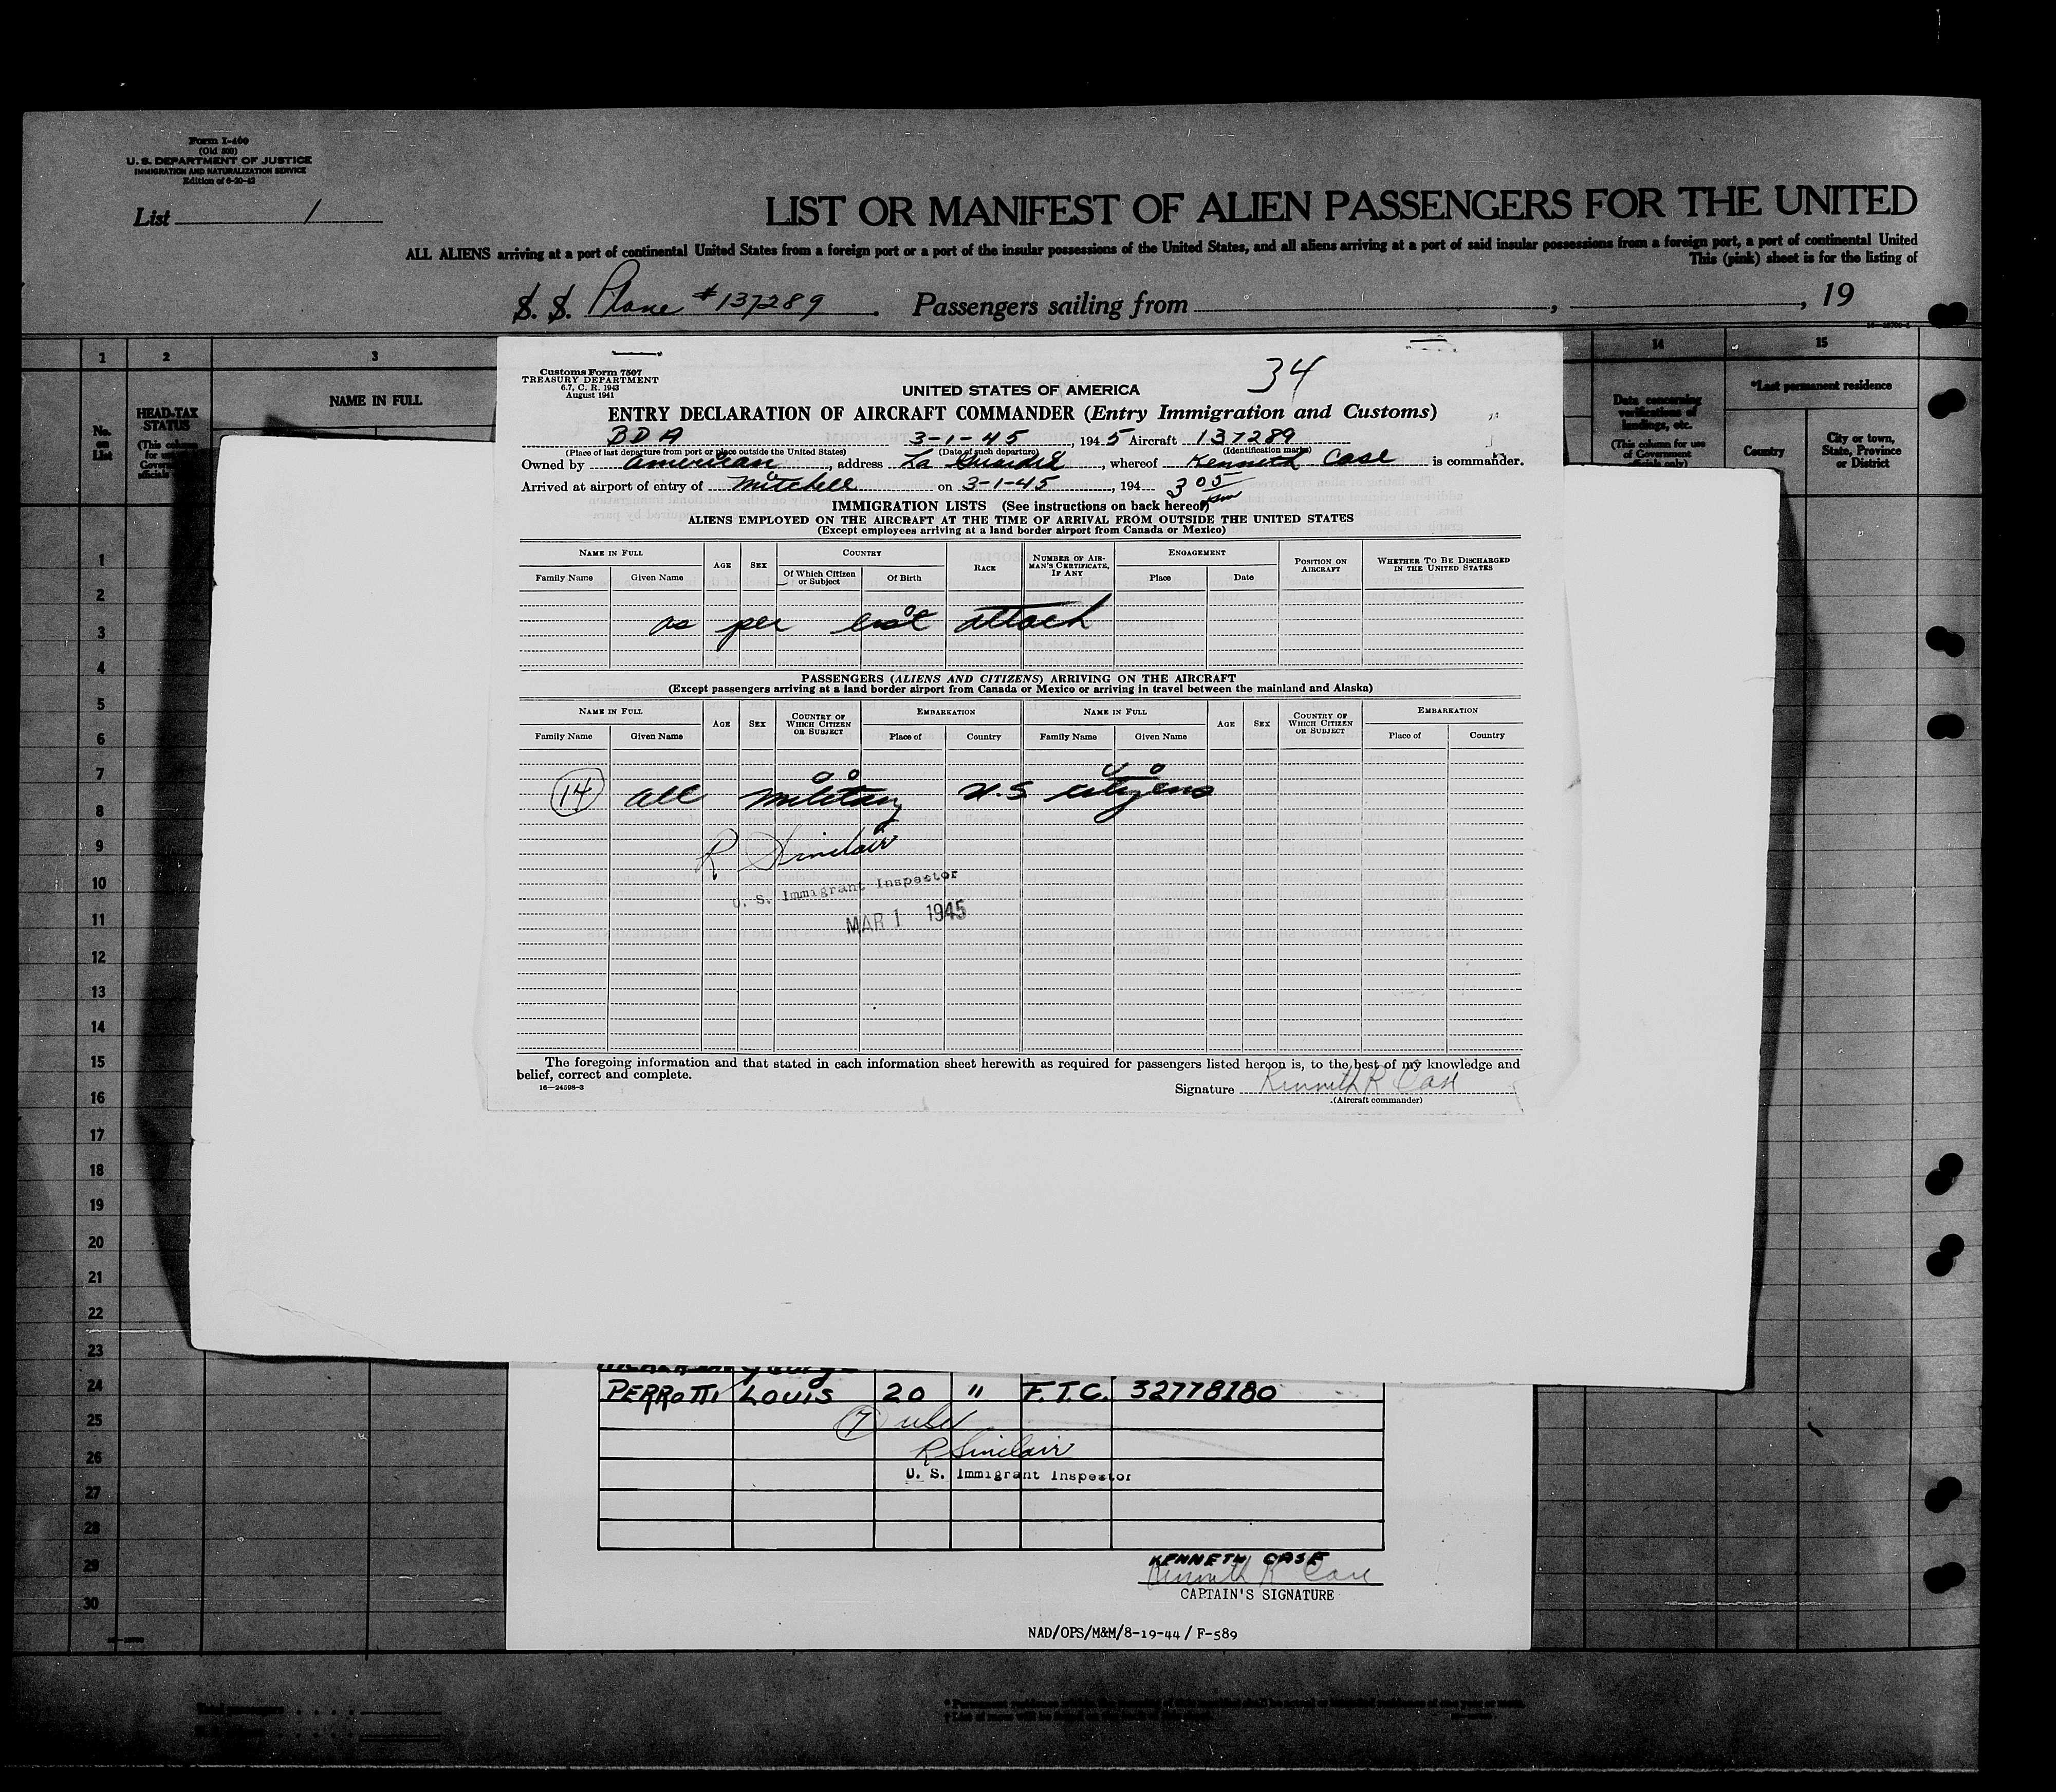 Form I-400
(Old 500)
U. S. DEPARTMENT OF JUSTICE
IMMIGRATION AND NATURALIZATION SERVICE
Edition of 6-20-42
List 1
LIST OR MANIFEST OF ALIEN PASSENGERS FOR THE UNITED
ALL ALIENS arriving at a port of continental United States from a foreign port or a port of the insular possessions of the United States, and all aliens arriving at a port of said insular possessions from a foreign port, a port of continental United
This (pink) sheet is for the listing of
S. S. Plane #137289. Passengers sailing from , , 19
1 2 3 14 15
No. on List
HEAD-TAX STATUS
NAME IN FULL
Data concerning verifications of landings, etc.
(This column for use of Government
*Last permanent residence
Country
City or town, State, Province or District
Customs Form 7507
TREASURY DEPARTMENT
6.7, C. R. 1943
August 1941
34
UNITED STATES OF AMERICA
ENTRY DECLARATION OF AIRCRAFT COMMANDER (Entry Immigration and Customs)
BDA 3-1-45, 1945 Aircraft 137289
(Place of last departure from port or place outside the United States) (Date of such departure) (Identification marks)
Owned by American, address La Guardia, whereof Kenneth Case is commander.
Arrived at airport of entry of Mitchell on 3-1-45, 194 3 05 pm
IMMIGRATION LISTS (See instructions on back hereof)
ALIENS EMPLOYED ON THE AIRCRAFT AT THE TIME OF ARRIVAL FROM OUTSIDE THE UNITED STATES
(Except employees arriving at a land border airport from Canada or Mexico)
NAME IN FULL AGE SEX COUNTRY RACE NUMBER OF AIRMAN'S CERTIFICATE, IF ANY ENGAGEMENT POSITION ON AIRCRAFT WHETHER TO BE DISCHARGED IN THE UNITED STATES
Family Name Given Name Of Which Citizen or Subject Of Birth Place Date
as per list attach
PASSENGERS (ALIENS AND CITIZENS) ARRIVING ON THE AIRCRAFT
(Except passengers arriving at a land border airport from Canada or Mexico or arriving in travel between the mainland and Alaska)
NAME IN FULL AGE SEX COUNTRY OF WHICH CITIZEN OR SUBJECT EMBARKATION NAME IN FULL AGE SEX COUNTRY OF WHICH CITIZEN OR SUBJECT EMBARKATION
Family Name Given Name Place of Country Family Name Given Name Place of Country
14 all military U.S citizens
R Sinclair
U. S. Immigrant Inspector
MAR 1 1945
The foregoing information and that stated in each information sheet herewith as required for passengers listed hereon is, to the best of my knowledge and
belief, correct and complete.
16—24598-3
Signature Kenneth R Case
(Aircraft commander)
1
2
3
4
5
6
7
8
9
10
11
12
13
14
15
16
17
18
19
20
21
22
23
24
25
26
27
28
29
30
PERROTTI LOUIS 20 " F.T.C. 32778180
7 USC
R Sinclair
U. S. Immigrant Inspector
KENNETH CASE
Kenneth R Case
CAPTAIN'S SIGNATURE
NAD/OPS/M&M/8-19-44/F-589